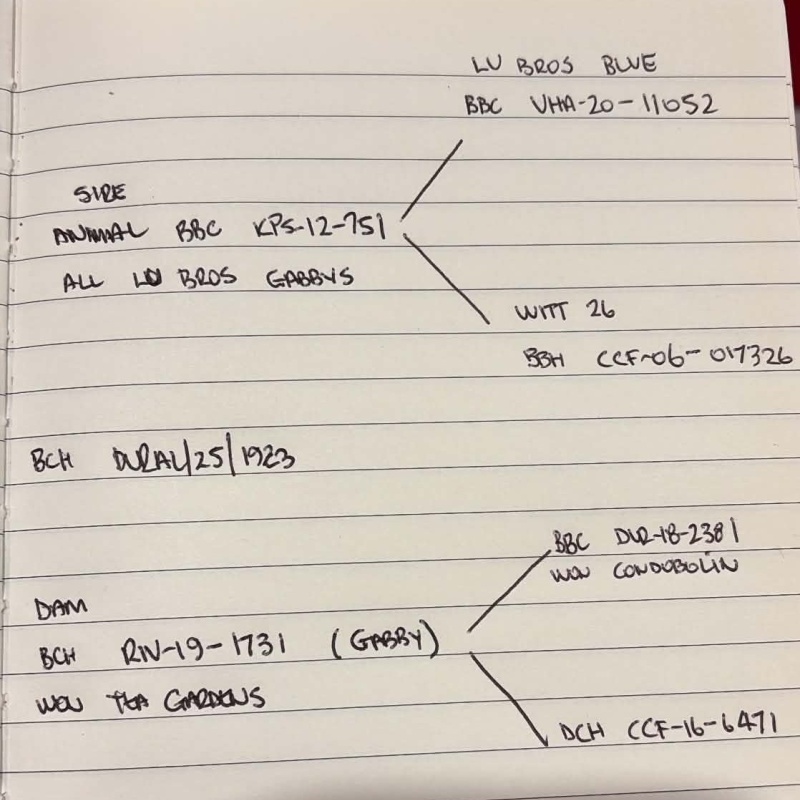 LU BROS BLUE
BBC VHA-20-11052
SIRE
ANIMAL BBC KPS-12-751
ALL LU BROS GABBYS
WITT 26
BBH CCF-06-017326
BCH DURAL/25/1923
BBC DUR-18-2381
WON CONDOBOLIN
DAM
BCH RIV-19-1731 (GABBY)
WON TEA GARDENS
DCH CCF-16-6471